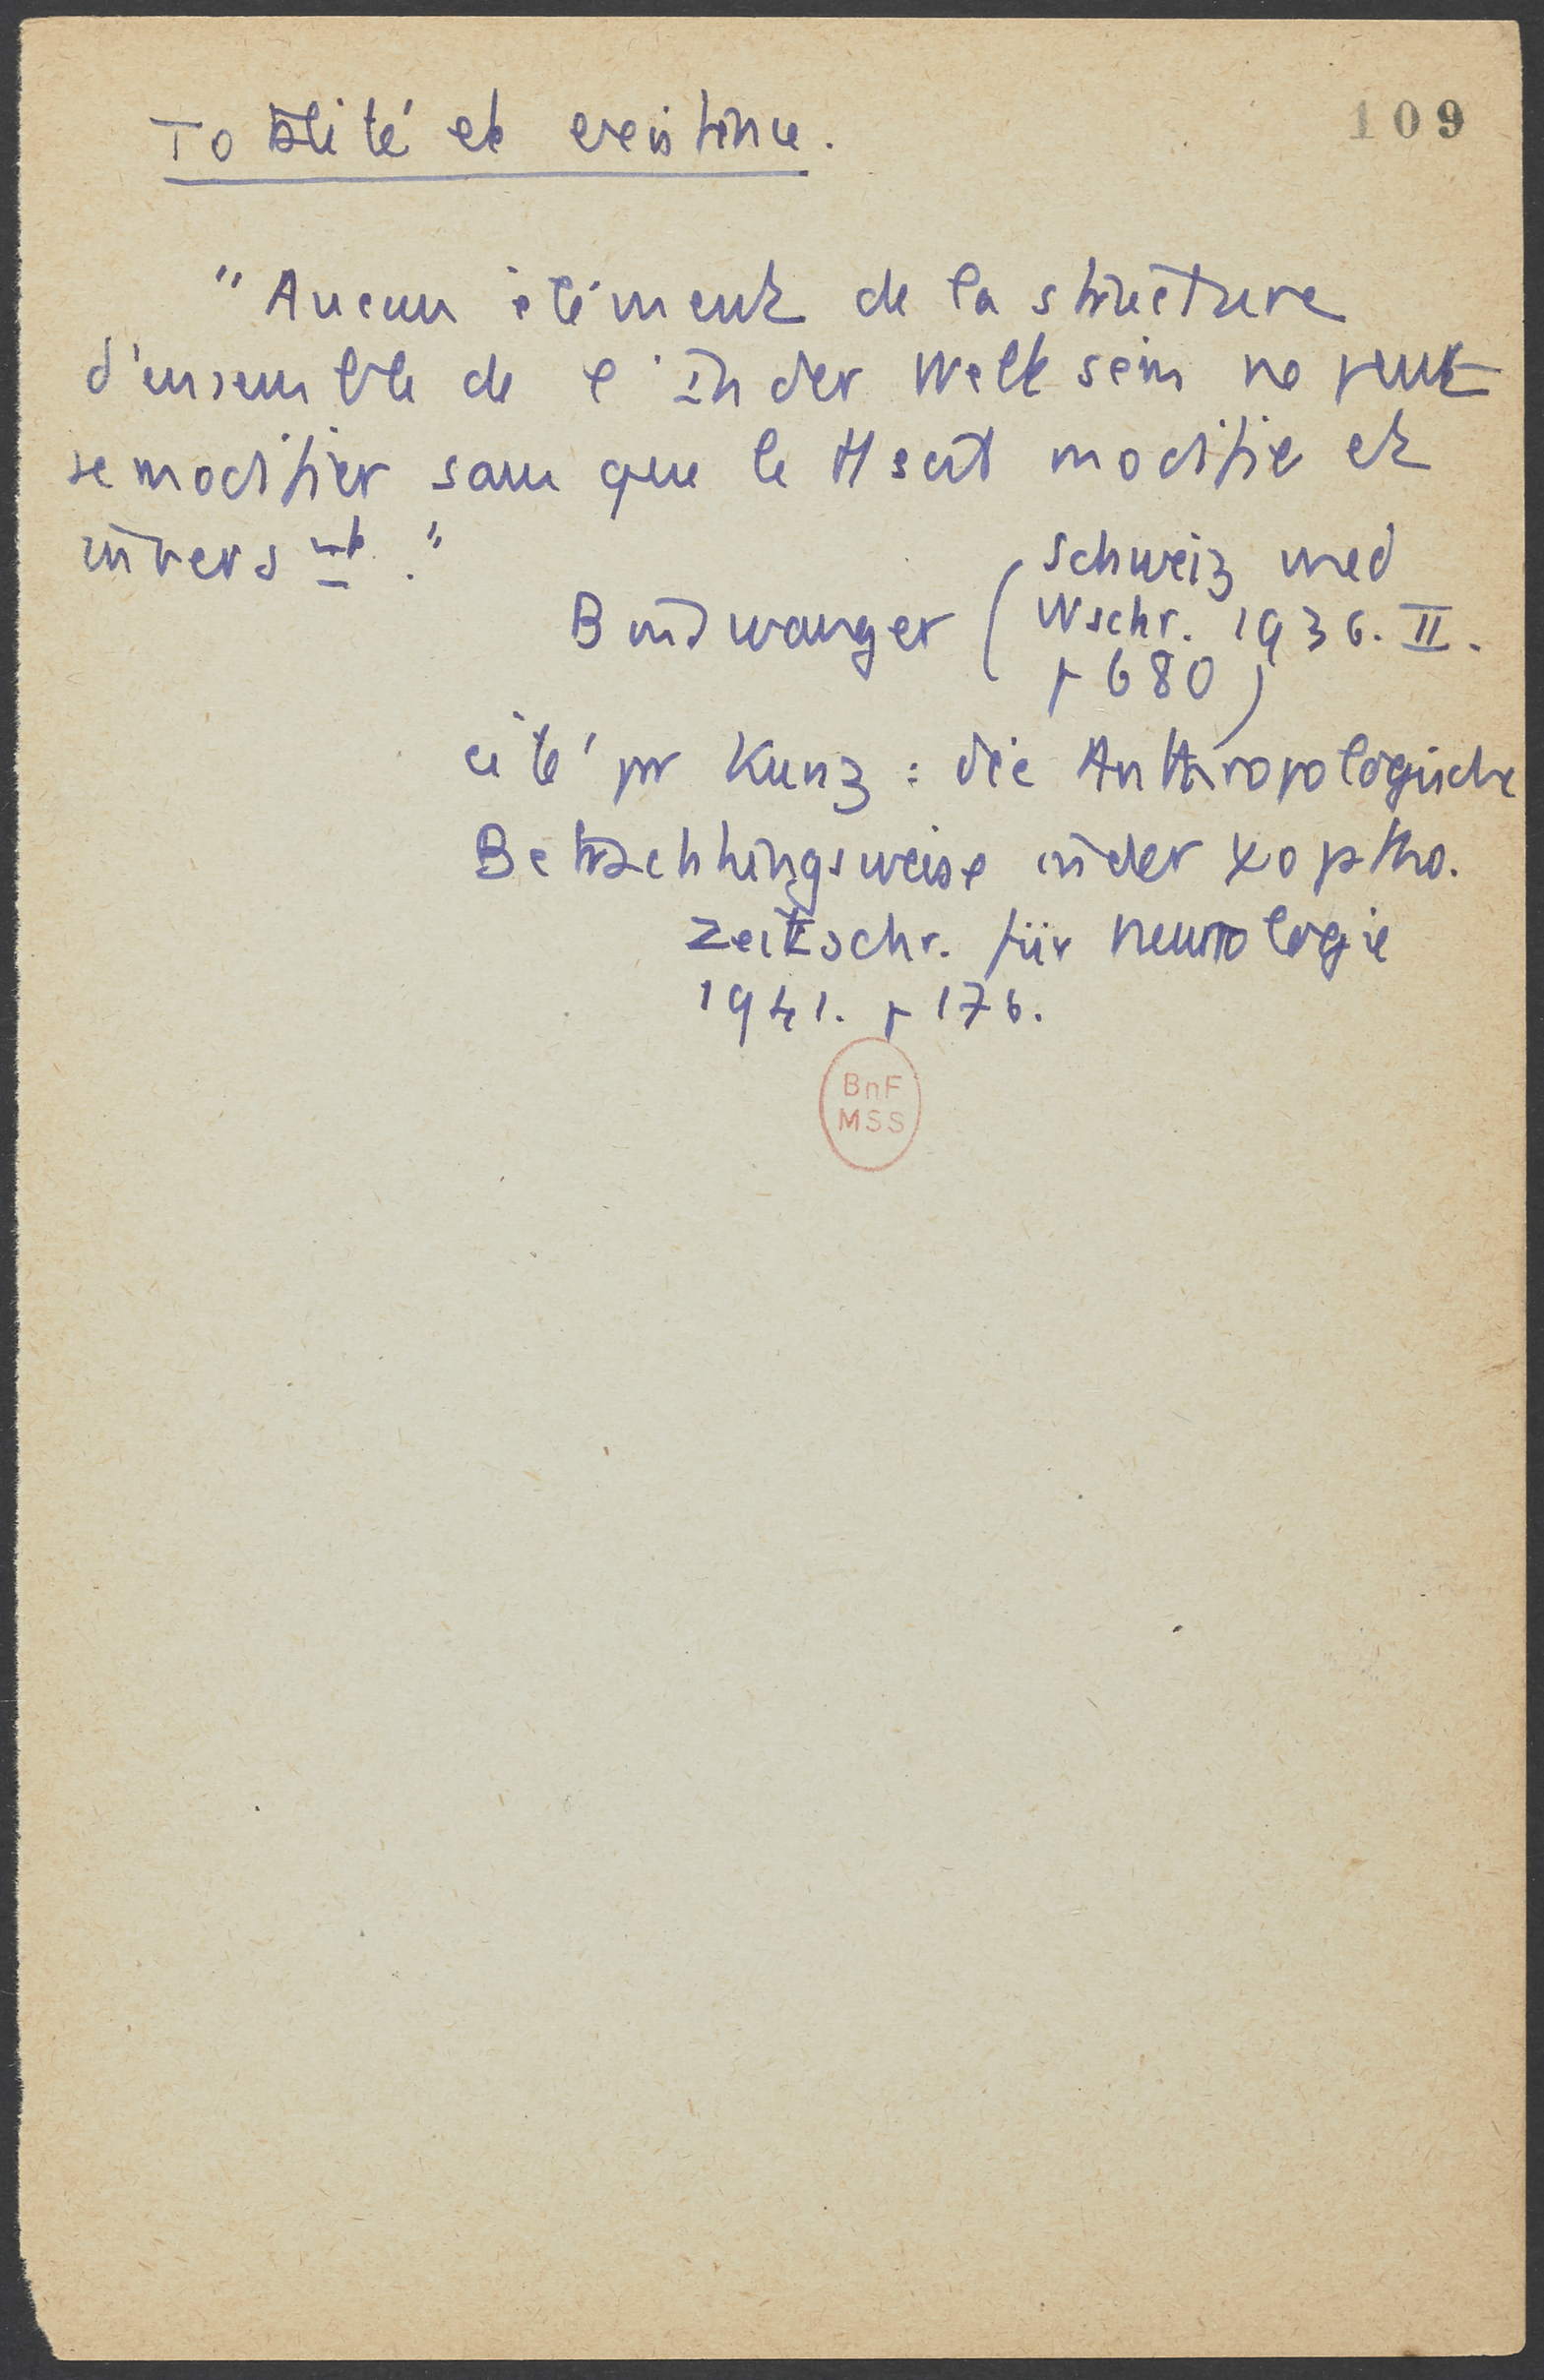 109
Totalité et existence.
"Aucun élément de la structure
d'ensemble de l'In der Welt sein ne peut
se modifier sans que le tt soit modifié et
inversmt."
Binswanger (Schweiz med
Wschr. 1936. II.
p 680)
cité pr Kunz : die Anthropologische
Betrachtungsweise in der
Zeitschr. für Neurologie
1941. p 176.
BnF
MSS